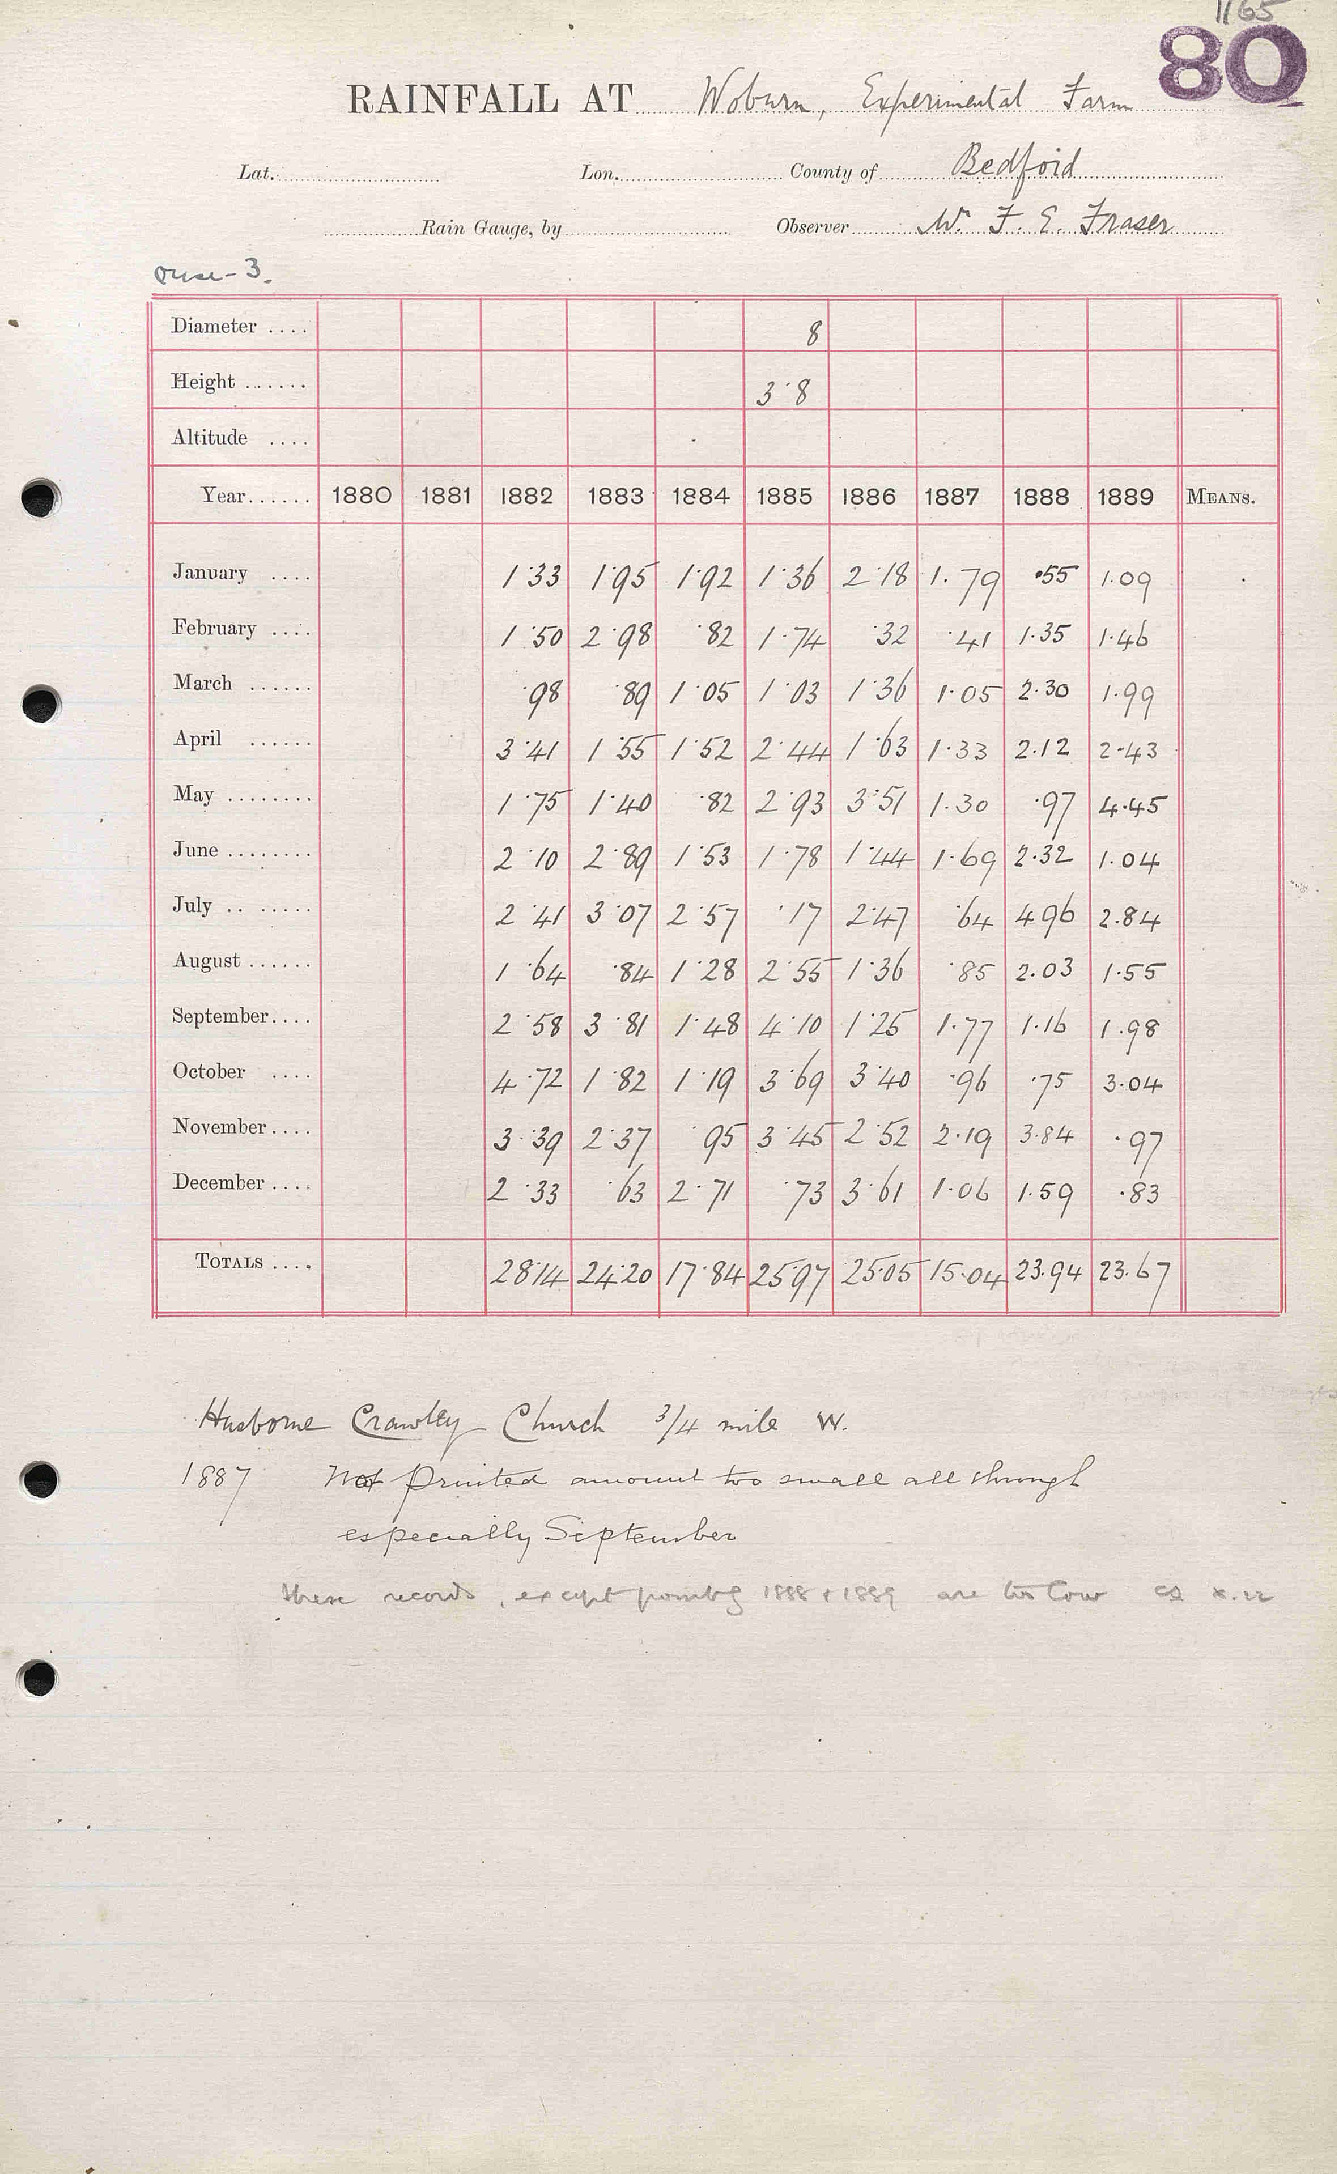 1165
80
RAINFALL AT Woburn, Experimental Farm
Lat. Lon. County of Bedford
Rain Gauge, by Observer Mr. F. E. Fraser
Ouse - 3.
Diameter .... 8
Height ...... 3·8
Altitude ....
Year...... 1880 1881 1882 1883 1884 1885 1886 1887 1888 1889 MEANS.
January .... 1·33 1·95 1·92 1·36 2·18 1.79 ·55 1.09
February .... 1·50 2·98 ·82 1·74 ·32 ·41 1.35 1.46
March ...... ·98 ·89 1·05 1·03 1·36 1.05 2.30 1.99
April ...... 3·41 1·55 1·52 2·44 1·63 1.33 2.12 2.43
May ........ 1·75 1·40 ·82 2·93 3·51 1.30 ·97 4.45
June ........ 2·10 2·89 1·53 1·78 1·44 1.69 2.32 1.04
July .. ...... 2·41 3·07 2·57 ·17 2·47 ·64 4.96 2.84
August ...... 1·64 ·84 1·28 2·55 1·36 ·85 2.03 1.55
September.... 2·58 3·81 1·48 4·10 1·25 1.77 1.16 1.98
October .... 4·72 1·82 1·19 3·69 3·40 ·96 ·75 3.04
November.... 3·39 2·37 ·95 3·45 2·52 2.19 3.84 ·97
December.... 2·33 ·63 2·71 ·73 3·61 1.06 1.59 ·83
TOTALS .... 28·14 24·20 17·84 25·97 25·05 15.04 23.94 23.67
Husborne Crawley Church 3/4 mile W.
1887 Not printed amount too small all through
especially September
These records, except 1888 + 1889 are too low